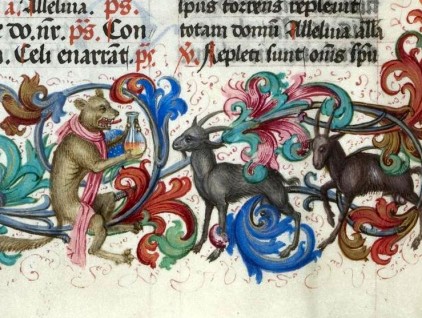 a, Alleluia. ps.
e dō. nr̄. ps. Con
n. Celi enarrāt. ps.
spūs torrens repleuit
totam domū Alleluia alla
℟. Repleti sunt om̄s spū